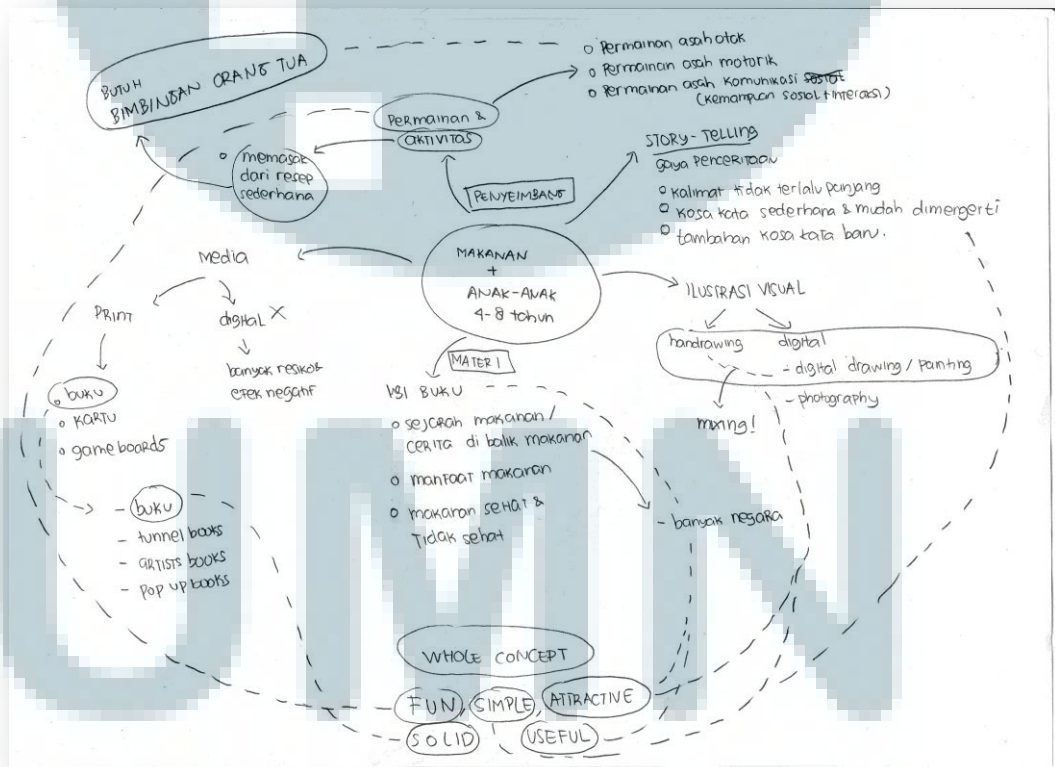 BUTUH
BIMBINGAN ORANG TUA
Permainan asah otak
Permainan asah motorik
Permainan asah komunikasi
(kemampuan sosial + interaksi)
Permainan &
AKTIVITAS
memasak
dari resep
sederhana
PENYEIMBANG
STORY-TELLING
gaya PENCERITAAN
kalimat tidak terlalu panjang
kosa kata sederhana & mudah dimengerti
tambahan kosa kata baru.
MAKANAN
+
ANAK-ANAK
4-8 tahun
Media
PRINT
digital X
banyak resiko &
efek negatif
buku
KARTU
game boards
- buku
- tunnel books
- ARTISTS books
- POP UP books
MATERI
ISI BUKU
sejarah makanan /
CERITA di balik makanan
manfaat makanan
makanan sehat &
Tidak sehat
- banyak negara
ILUSTRASI VISUAL
handrawing digital
- digital drawing / painting
- photography
mixing!
WHOLE CONCEPT
FUN, SIMPLE, ATTRACTIVE
SOLID USEFUL
UMN